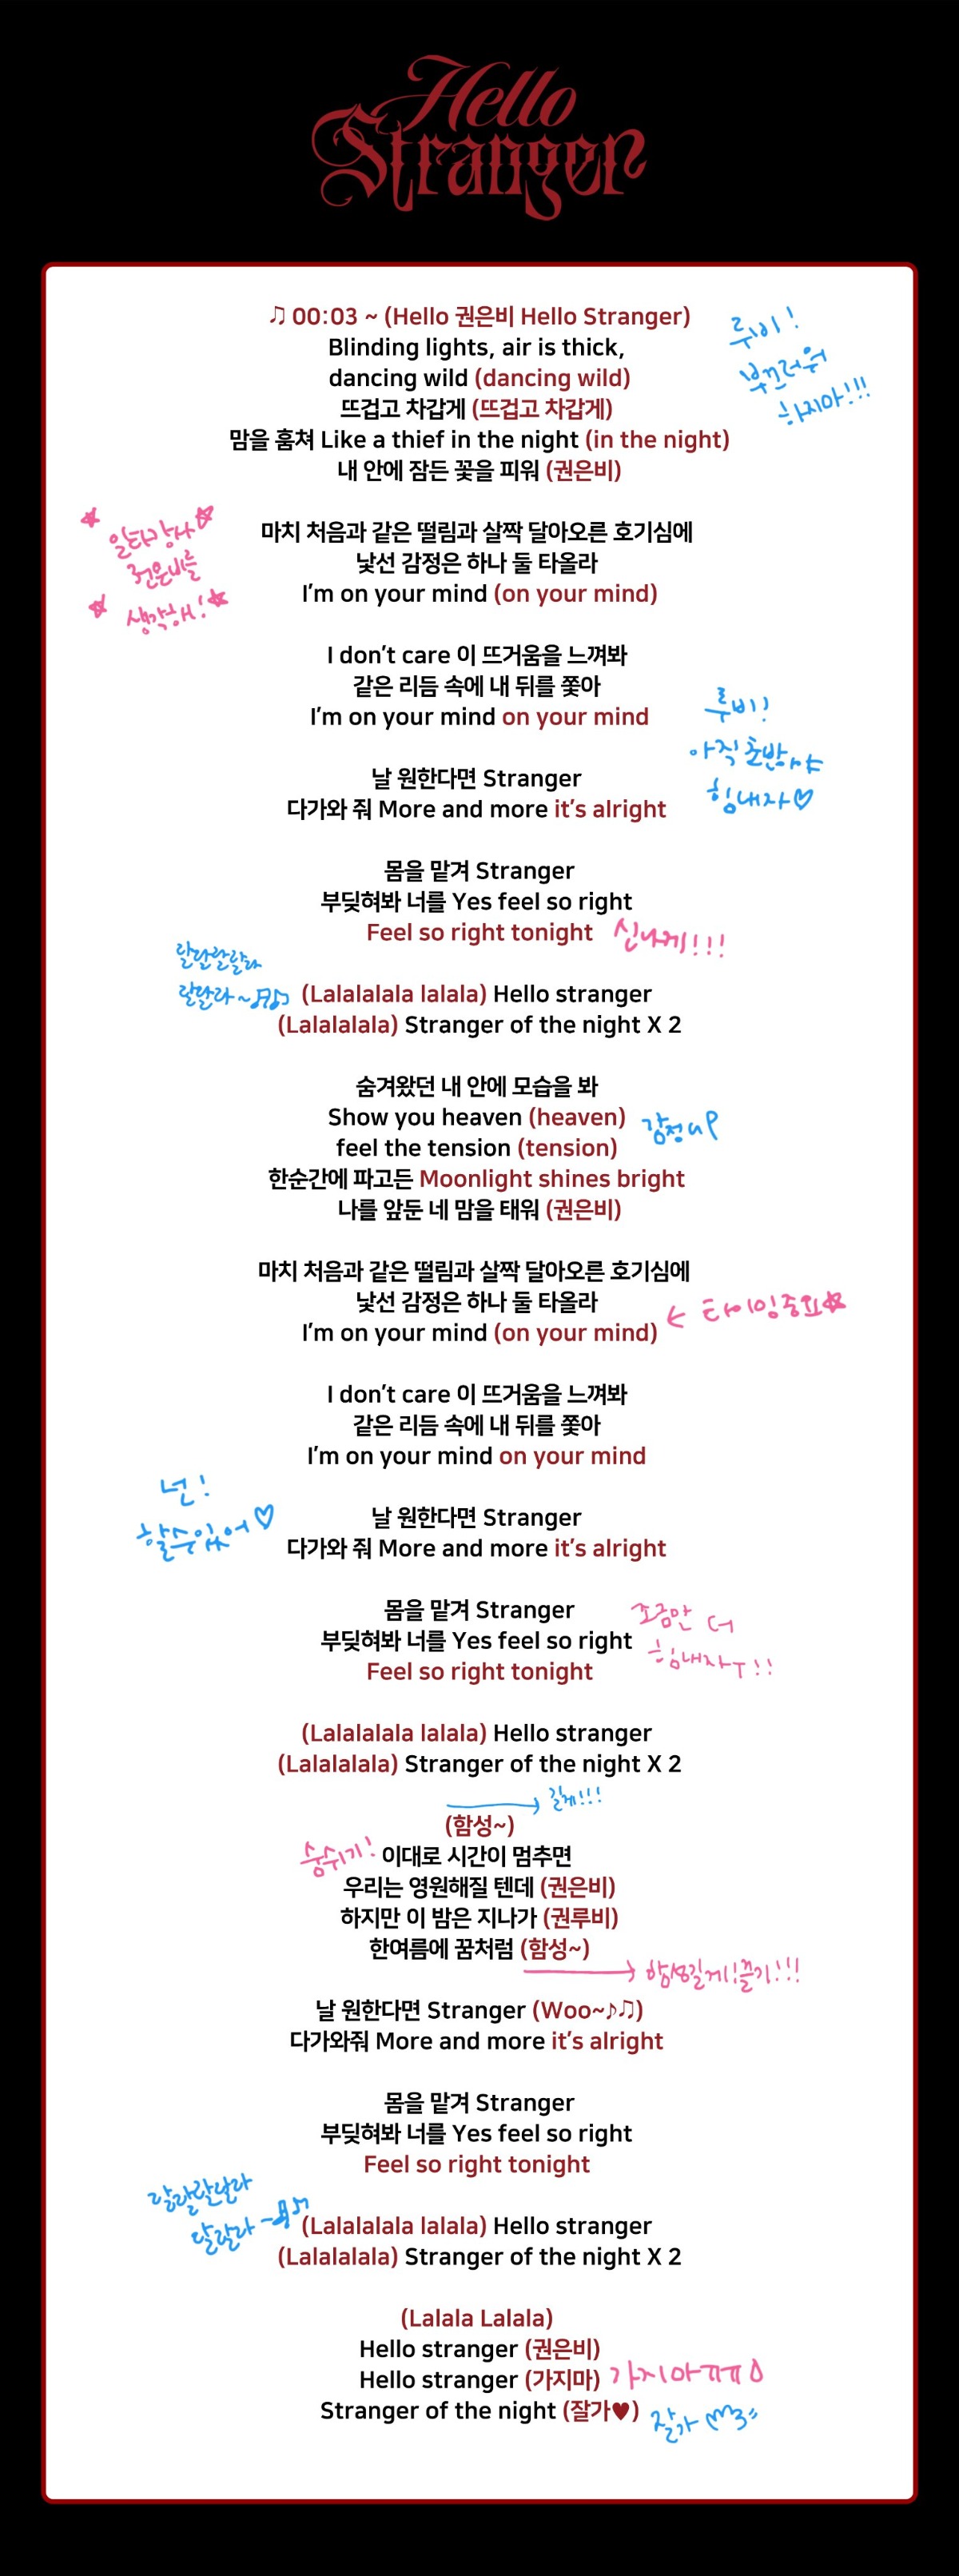 Hello
Stranger
♫ 00:03 ~ (Hello 권은비 Hello Stranger)
루비!
부끄러워
하지마!!!
Blinding lights, air is thick,
dancing wild (dancing wild)
뜨겁고 차갑게 (뜨겁고 차갑게)
맘을 훔쳐 Like a thief in the night (in the night)
내 안에 잠든 꽃을 피워 (권은비)
일타강사
권은비를
생각해!
마치 처음과 같은 떨림과 살짝 달아오른 호기심에
낯선 감정은 하나 둘 타올라
I'm on your mind (on your mind)
I don't care 이 뜨거움을 느껴봐
같은 리듬 속에 내 뒤를 쫓아
I'm on your mind on your mind
루비!
아직 초반이야
힘내자♡
날 원한다면 Stranger
다가와 줘 More and more it's alright
몸을 맡겨 Stranger
부딪혀봐 너를 Yes feel so right
Feel so right tonight 신나게!!!
랄랄랄랄라
랄랄라~♫♪ (Lalalalala lalala) Hello stranger
(Lalalalala) Stranger of the night X 2
숨겨왔던 내 안에 모습을 봐
Show you heaven (heaven) 감정 up
feel the tension (tension)
한순간에 파고든 Moonlight shines bright
나를 앞둔 네 맘을 태워 (권은비)
마치 처음과 같은 떨림과 살짝 달아오른 호기심에
낯선 감정은 하나 둘 타올라
I'm on your mind (on your mind) ← 타이밍중요☆
I don't care 이 뜨거움을 느껴봐
같은 리듬 속에 내 뒤를 쫓아
I'm on your mind on your mind
넌!
할수있어♡
날 원한다면 Stranger
다가와 줘 More and more it's alright
몸을 맡겨 Stranger
부딪혀봐 너를 Yes feel so right
Feel so right tonight
조금만 더
힘내자ㅜ!!
(Lalalalala lalala) Hello stranger
(Lalalalala) Stranger of the night X 2
→ 길게!!!
(함성~)
숨쉬기! 이대로 시간이 멈추면
우리는 영원해질 텐데 (권은비)
하지만 이 밤은 지나가 (권루비)
한여름에 꿈처럼 (함성~)
→ 함성길게!끌기!!!
날 원한다면 Stranger (Woo~♪♫)
다가와줘 More and more it's alright
몸을 맡겨 Stranger
부딪혀봐 너를 Yes feel so right
Feel so right tonight
랄랄랄랄라
랄랄라~♫♪ (Lalalalala lalala) Hello stranger
(Lalalalala) Stranger of the night X 2
(Lalala Lalala)
Hello stranger (권은비)
Hello stranger (가지마) 가지마ㅠㅠ
Stranger of the night (잘가♥) 잘가